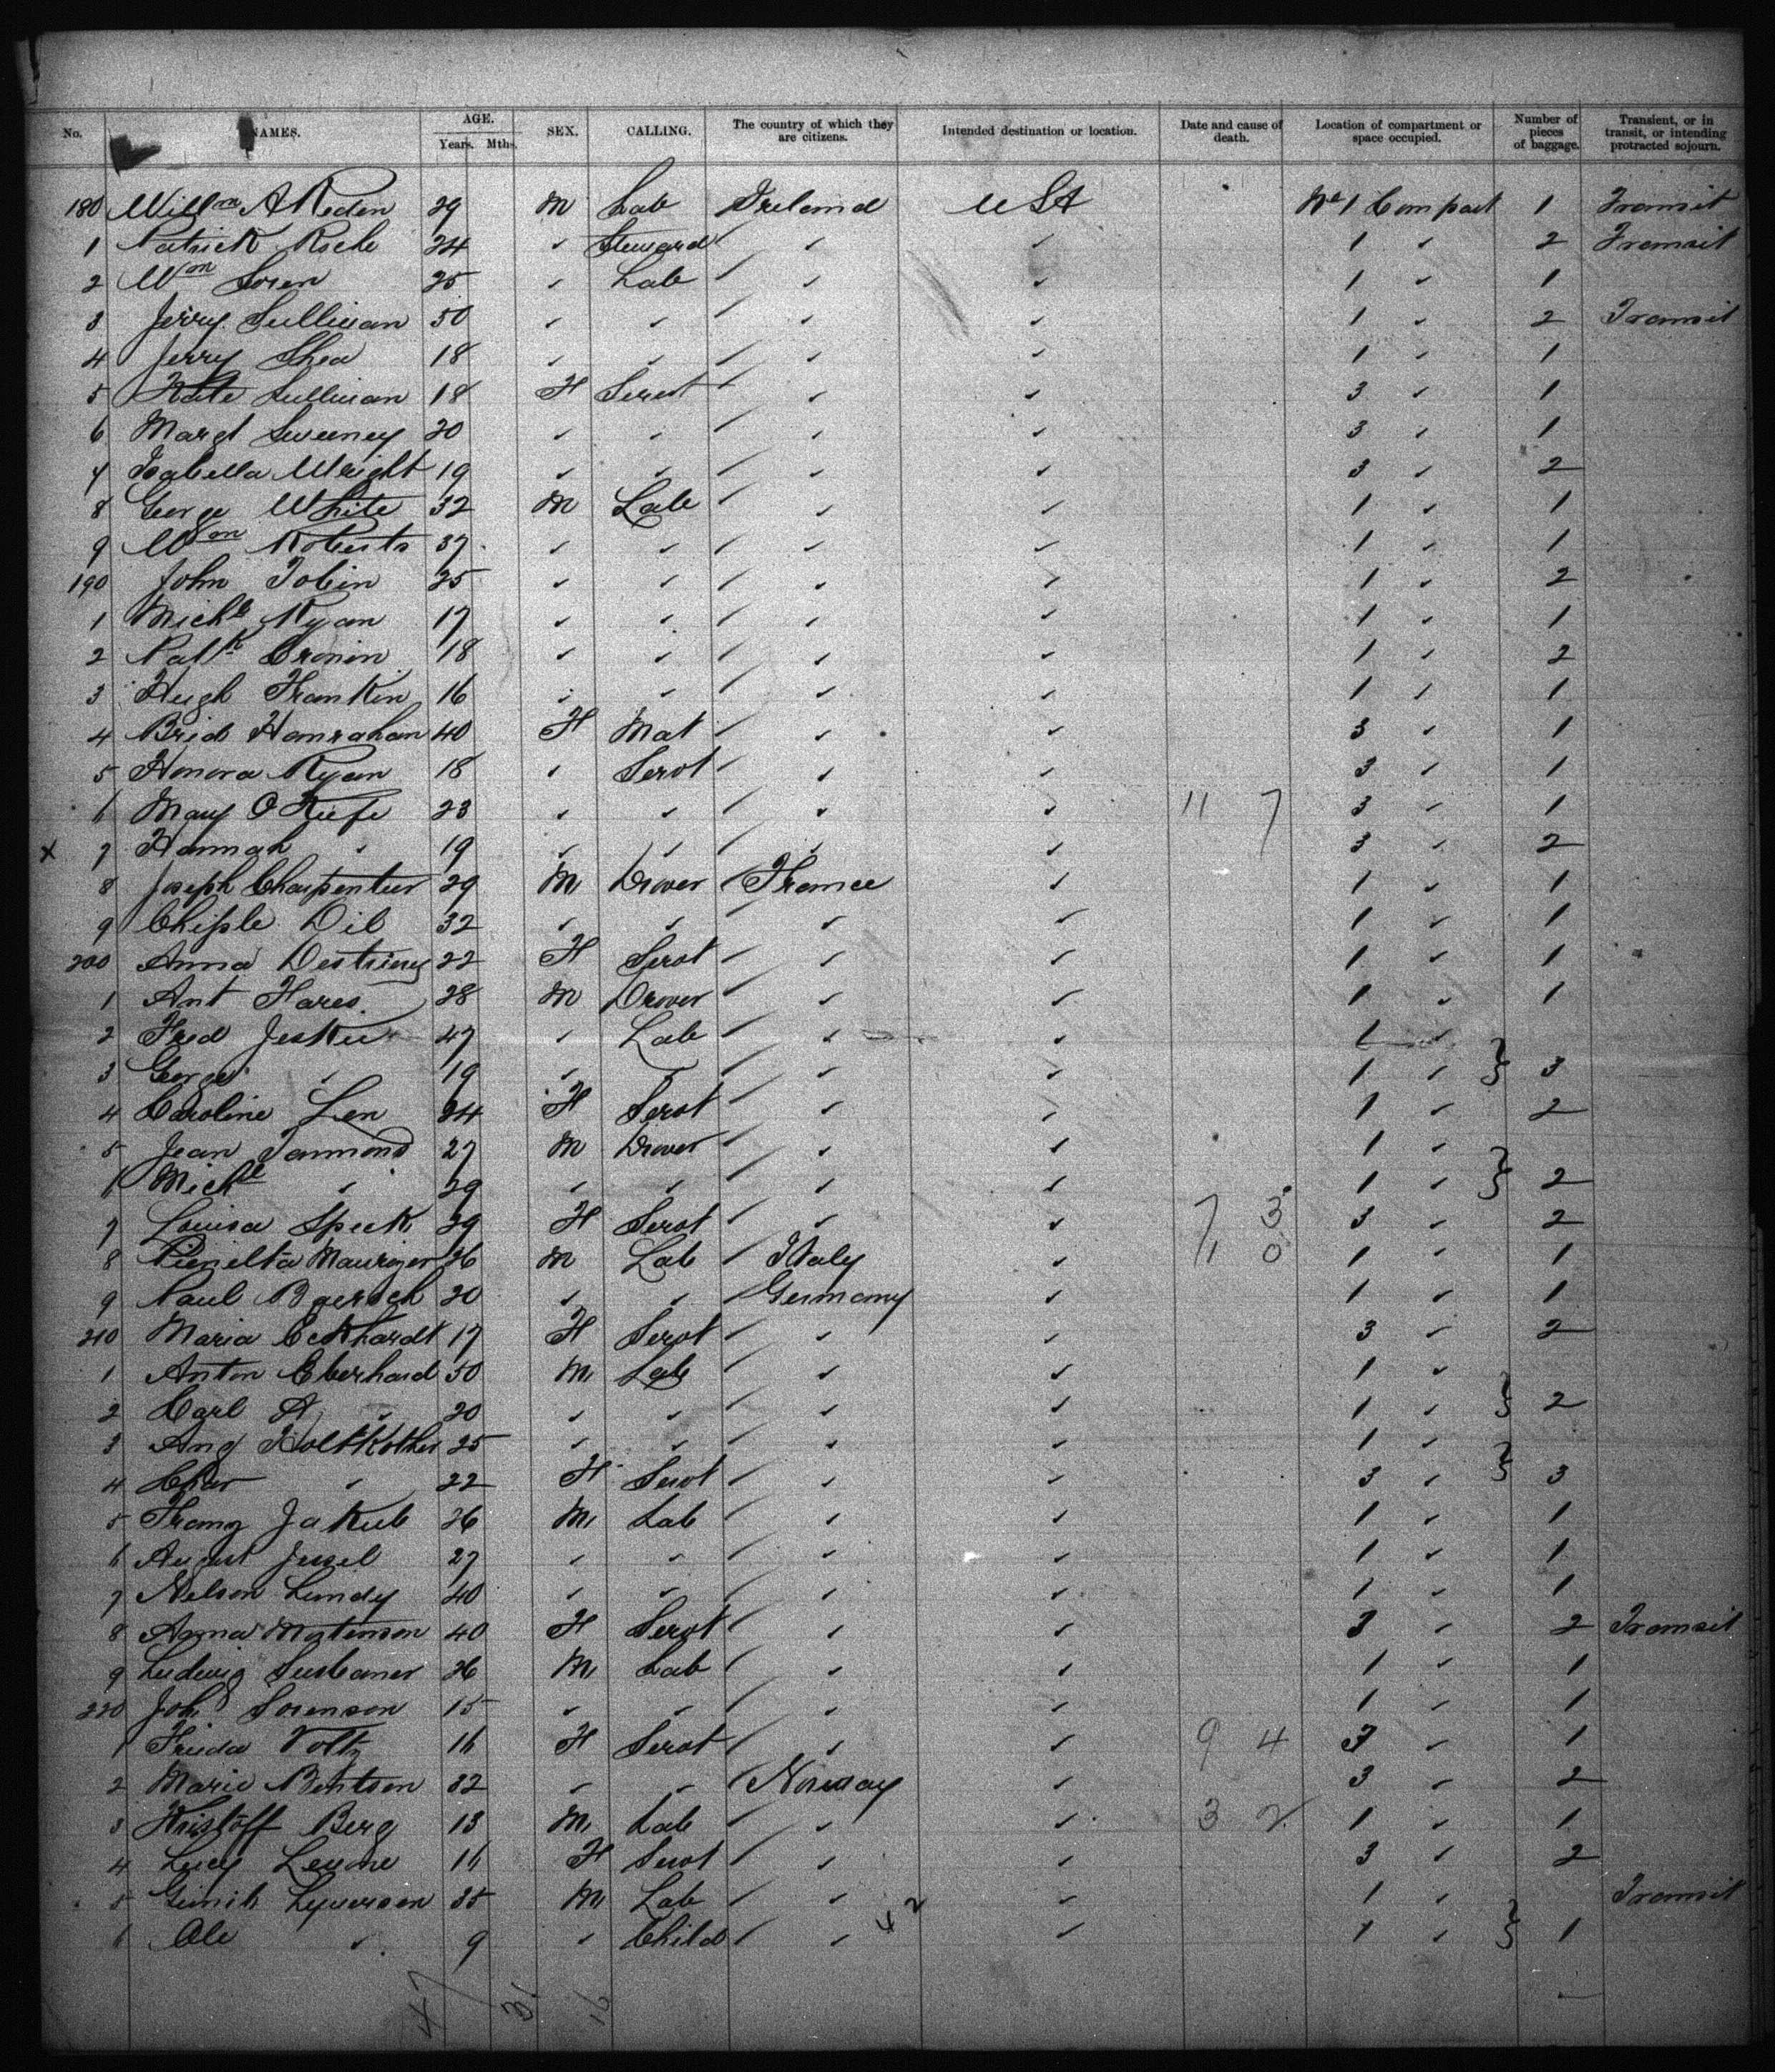 No. NAMES. AGE. Years. Mths. SEX. CALLING. The country of which they are citizens. Intended destination or location. Date and cause of death. Location of compartment or space occupied. Number of pieces of baggage. Transient, or in transit, or intending protracted sojourn.
180 Willm A Reden 29 M Lab Ireland USA No 1 Compart 1 Transit
1 Patrick Roche 24 " Steward " " " 1 " 2 Transit
2 Wm Soren 25 " Lab " " " 1 " 1
3 Jerry Sullivan 50 " " " " " 1 " 2 Transit
4 Jerry Shea 18 " " " " " 1 " 1
5 Kate Sullivan 18 F Servt " " " 3 " 1
6 Margt Sweeney 20 " " " " " 3 " 1
7 Isabella Wright 19 " " " " " 3 " 2
8 George White 32 M Lab " " " 1 " 1
9 Wm Roberts 37 " " " " " 1 " 1
190 John Tobin 25 " " " " " 1 " 2
1 Michl Ryan 17 " " " " " 1 " 1
2 Patk Cronin 18 " " " " " 1 " 2
3 Hugh Frankin 16 " " " " " 1 " 1
4 Brid Hanrahan 40 F Mat " " " 3 " 1
5 Honora Ryan 18 " Servt " " " 3 " 1
6 Mary O Keefe 23 " " " " " 11 7 3 " 1
x 7 Hannah " 19 " " " " " 3 " 2
8 Joseph Charpentier 29 M Drover " France " 1 " 1
9 Chiple Dil 32 " " " " " 1 " 1
200 Anna 22 F Servt " " " 1 " 1
1 Ant Fares 28 M Drover " " " 1 " 1
2 Fred Jeskie 47 " Lab " " " 1 "
3 George " 19 " " " " " 1 " } 3
4 Caroline Len 24 F Servt " " " 1 " 2
5 Jean Tammond 27 M Drover " " " 1 "
6 Michl " 29 " " " " " 1 " } 2
7 Louisa Speck 29 F Servt " " " 7 3 3 " 2
8 26 M Lab " Italy " 11 0 1 " 1
9 Paul Baersch 20 " " Germany " 1 " 1
210 Maria Eckhardt 17 F Servt " " " 3 " 2
1 Anton Eberhard 50 M Lab " " " 1 "
2 Carl A " 20 " " " " " 1 " } 2
3 Aug Holtkother 25 " " " " " 1 "
4 " 22 F Servt " " " 3 " } 3
5 Franz Jakub 26 M Lab " " " 1 " 1
6 August Jessel 27 " " " " " 1 " 1
7 Nelson Lundy 40 " " " " " 1 " 1
8 Anna Mortenson 40 F Servt " " " 3 " 2 Transit
9 Ludwig 26 M Lab " " " 1 " 1
220 Joh Sorenson 15 " " " " " 1 " 1
1 Frieda Voltz 16 F Servt " " " 9 4 3 " 1
2 Marie Bentsen 32 " " " Norway " 3 " 2
3 Kristoff Berg 13 M Lab " " " 3 2 1 " 1
4 Lucy 16 F Servt " " " 3 " 2
5 35 M Lab " " " 1 " Transit
6 Ole " 9 " Child " " 42 " 1 " } 1
47 31 16